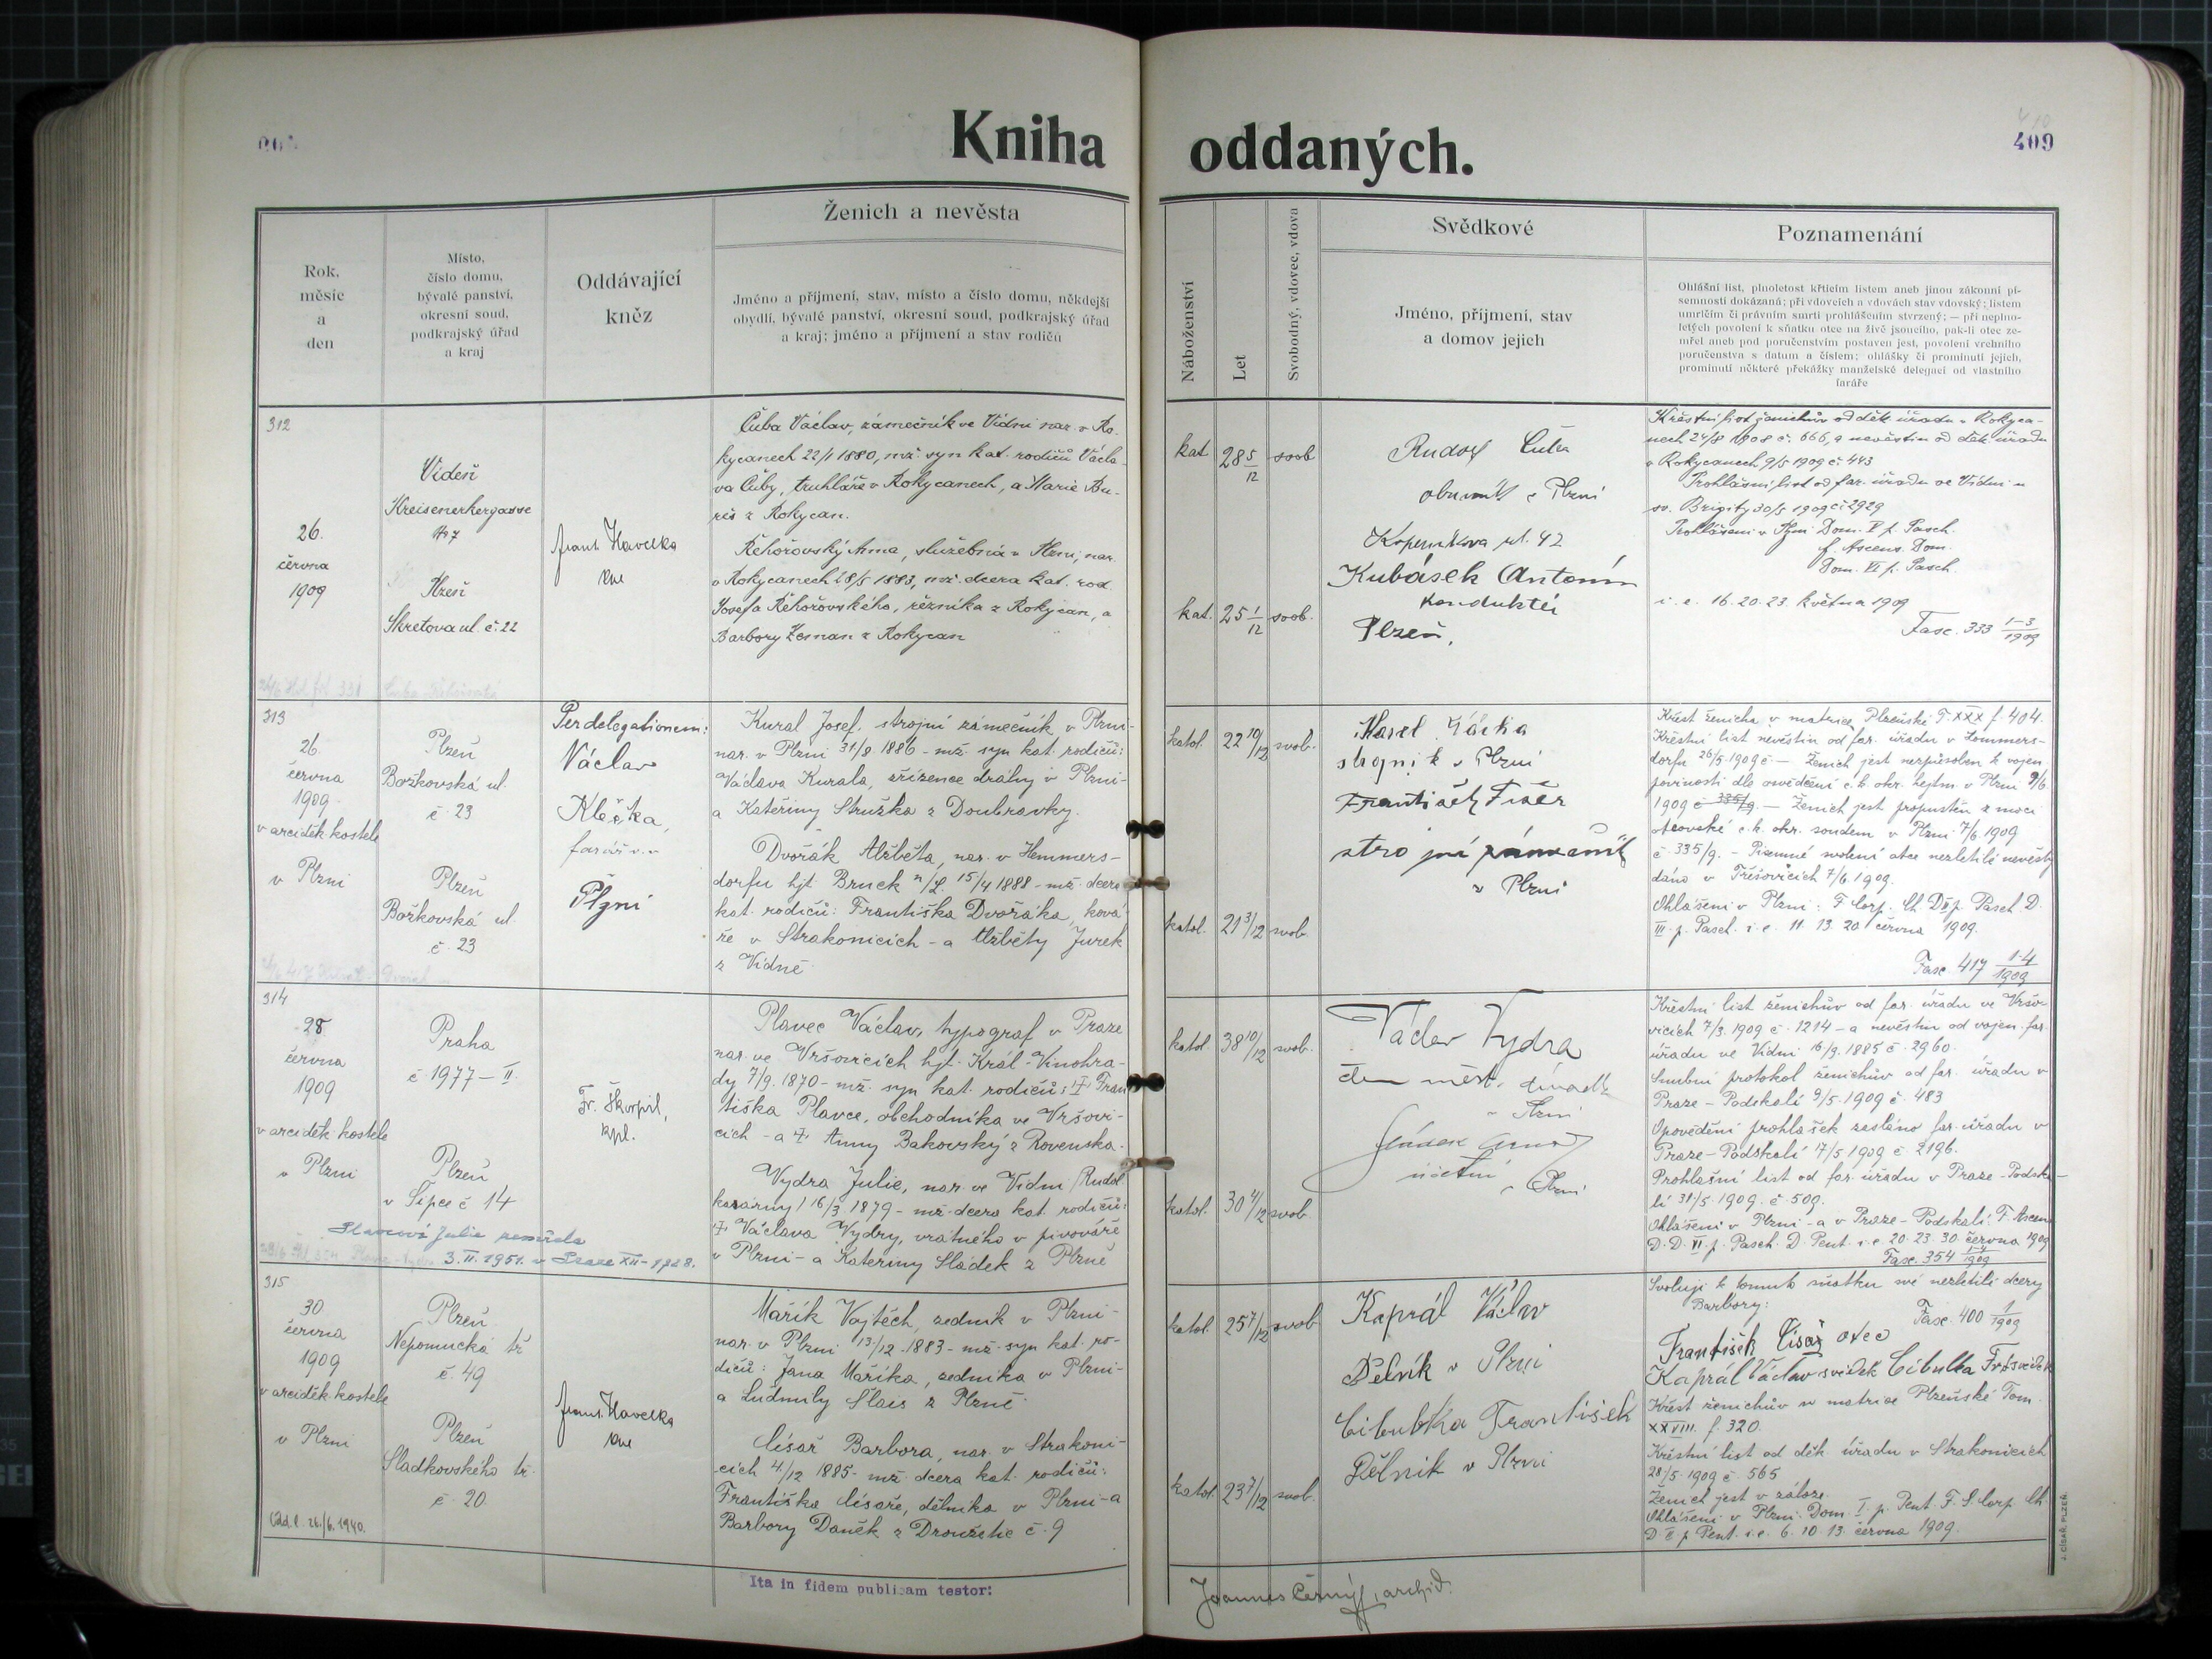 Kniha oddaných.
409
Rok,
měsíc
a
den
Místo,
číslo domu,
bývalé panství,
okresní soud,
podkrajský úřad
a kraj
Oddávající
kněz
Ženich a nevěsta
Jméno a příjmení, stav, místo a číslo domu, někdejší
obydlí, bývalé panství, okresní soud, podkrajský úřad
a kraj; jméno a příjmení a stav rodičů
Náboženství
Let
Svobodný, vdovec, vdova
Svědkové
Jméno, příjmení, stav
a domov jejich
Poznamenání
Ohlášní list, plnoletost křticím listem aneb jinou zákonní pí-
semností dokázaná; při vdovcích a vdovách stav vdovský; listem
umrlčím či právním smrti prohlášením stvrzený; — při neplno-
letých povolení k sňatku otce na živě jsoucího, pak-li otec ze-
mřel aneb pod poručenstvím postaven jest, povolení vrchního
poručenstva s datum a číslem; ohlášky či prominutí jejich,
prominutí některé překážky manželské delegací od vlastního
faráře
312
26.
června
1909
Vídeň
No 7
Plzeň
Škretova ul. č. 22
Frant. Havelka
Čuba Václav, zámečník ve Vídni nar. v Ro-
kycanech 22/1 1880, mž. syn kat. rodičů Václa-
va Čuby, truhláře v Rokycanech, a Marie Bu-
reš z Rokycan.
Řehořovský Anna, služebná v Plzni, nar.
v Rokycanech 28/5 1883, mž. dcera kat. rod.
Josefa Řehořovského, řezníka z Rokycan, a
Barbory Zeman z Rokycan
kat.
28 5/12
svob
kat.
25 1/12
svob.
Rudolf Čuba
obuvník v Plzni
Koperníkova ul. 42
Kubásek Antonín
konduktér
Plzeň,
Křestní list ženichův od děk. úřadu v Rokyca-
nech 24/8 1908 č. 666, a nevěstin od děk. úřadu
v Rokycanech 9/5 1909 č. 443
Prohlášní list od far. úřadu ve Vídni u
sv. Brigity 30/5 1909 č. 2929
Prohlášeni v Plzni Dom. V p. Pasch.
f. Ascens. Dom.
Dom. VI p. Pasch.
i. e. 16. 20. 23. května 1909
Fasc. 333 1-3/1909
313
26.
června
1909
v arciděk. kostele
v Plzni
Plzeň
Božkovská ul.
č. 23
Plzeň
Božkovská ul.
č. 23
Per delegationem:
Václav
Klečka,
farář v. v.
Plzni
Kural Josef, strojní zámečník v Plzni-
nar. v Plzni 31/8. 1886 - mž. syn kat. rodičů:
Václava Kurala, zřízence dráhy v Plzni-
a Kateřiny Stružka z Doubravky.
Dvořák Alžběta, nar. v Hemmers-
dorfu hjt. Bruck n/L. 15/4 1888 - mž. dcera
kat. rodičů: Františka Dvořáka, ková-
ře v Strakonicích - a Alžběty Jurek
z Vídně
katol.
22 10/12
svob.
katol.
21 3/12
svob.
Karel
strojník v Plzni
František Fišer
strojní zámečník
v Plzni
Křest ženicha v matrice Plzeňské T. XXX f. 404.
Křestní list nevěstin od far. úřadu v Sommers-
dorfu 26/5. 1909 č — Ženich jest nezpůsoben k vojen.
povinosti dle osvědčení c.k. okr. hejtm. v Plzni 9/6
1909 č 335/9. — Ženich jest propuštěn z moci
otcovské c. k. okr. soudem v Plzni 7/6. 1909
č. 335/9. - Písemné svolení otce nezletilé nevěsty
dáno v Třešovicích 7/6. 1909.
Ohlášeni v Plzni: F. Corp. Ch. D. II p. Pasch D.
III. p. Pasch. i. e. 11. 13. 20. června 1909.
Fasc. 417 1-4/1909
314
28
června
1909
v arciděk. kostele
v Plzni
Praha
č 1977 - II.
Plzeň
v Šipce č 14
Fr. Škorpil,
kpl.
Plavec Václav, typograf v Praze
nar. ve Vršovicích hjt. Král. Vinohra-
dy 7/9. 1870 - mž. syn kat. rodičů: † Fran-
tiška Plavce, obchodníka ve Vršovi-
cích - a † Anny Bakovský z Rovenska.
Vydra Julie, nar. ve Vídni (Rudol.
kasárny) 16/3. 1879 - mž. dcera kat. rodičů:
† Václava Vydry, vrátného v pivováře
v Plzni - a Kateřiny Sládek z Plzně
Plavcová Julie zemřela
3. II. 1951. v Praze XII - 1928.
katol.
38 10/12
svob.
katol.
30 4/12
svob.
Václav Vydra
člen měst. divadla
v Plzni
účetní
v Plzni
Křestní list ženichův od far. úřadu ve Vršo-
vicích 7/3. 1909 č. 1214 - a nevěstin od vojen. far.
úřadu ve Vídni 16/9. 1885 č. 2960.
Snubní protokol ženichův od far. úřadu v
Praze - Podskalí 9/5. 1909 č. 483
Opovědění prohlášek zasláno far. úřadu v
Praze - Podskalí 17/5 1909 č. 2196.
Prohlašní list od far. úřadu v Praze - Podska-
lí 31/5. 1909. č 509.
Ohlášeni v Plzni - a v Praze - Podskalí: F. Ascen.
D. D. VI. p. Pasch. D. Pent. i. e. 20. 23. 30. června 1909
Fasc. 354 1-4/1909
315
30
června
1909
v arciděk. kostele
v Plzni
Plzeň
Nepomucká tř
č. 49
Plzeň
Sladkovského tř.
č. 20.
26./6. 1940.
Frant. Havelka
Mařík Vojtěch, zedník v Plzni-
nar. v Plzni 13/12. 1883 - mž. syn kat. ro-
dičů: Jana Maříka, zedníka v Plzni-
a Ludmily Slais z Plzně
Císař Barbora, nar. v Strakoni-
cích 4/12 1885 - mž. dcera kat. rodičů:
Františka Císaře, dělníka v Plzni - a
Barbory Daněk z Droužetic č. 9
katol.
25 7/12
svob
katol.
23 7/12
svob.
Kaprál Václav
Dělník v Plzni
Cibulka František
Dělník v Plzni
Svoluji k tomuto sňatku své nezletilé dcery
Barbory:
Fasc. 400 1/1909
František Císař otec
Kaprál Václav svědek Cibulka Fr. svědek
Křest ženichův v matrice Plzeňské Tom.
XXVIII. f. 320.
Křestní list od děk. úřadu v Strakonicích
28/5. 1909 č. 565
Ženich jest v záloze.
Ohlášeni v Plzni: Dom. I. p. Pent. F. S. Corp. Ch.
D. II p Pent. i. e. 6. 10. 13. června 1909.
J. CÍSAŘ, PLZEŇ.
Ita in fidem publicam testor:
Joannes Černý, archid.